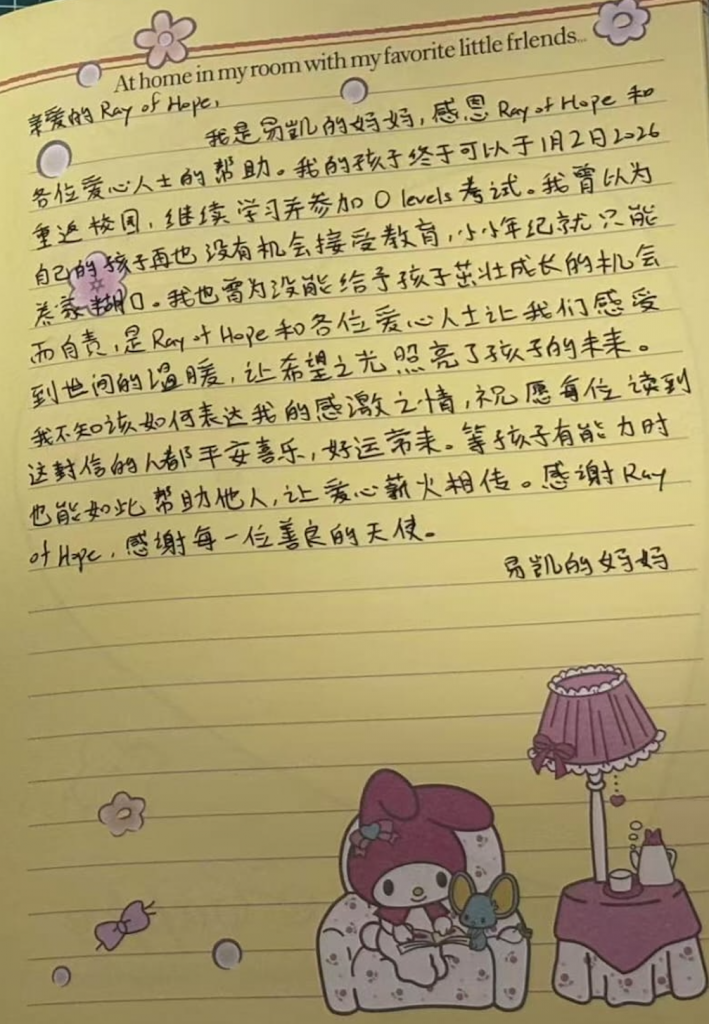 At home in my room with my favorite little friends...
亲爱的 Ray of Hope,
我是易凯的妈妈，感恩 Ray of Hope 和
各位爱心人士的帮助。我的孩子终于可以于1月2日2026
重返校园，继续学习并参加 O levels 考试。我曾以为
自己的孩子再也没有机会接受教育，小小年纪就只能
养家糊口。我也曾为没能给予孩子茁壮成长的机会
而自责，是 Ray of Hope 和各位爱心人士让我们感受
到世间的温暖，让希望之光照亮了孩子的未来。
我不知该如何表达我的感激之情，祝愿每位读到
这封信的人都平安喜乐，好运常来。等孩子有能力时
也能如此帮助他人，让爱心薪火相传。感谢 Ray
of Hope，感谢每一位善良的天使。
易凯的妈妈